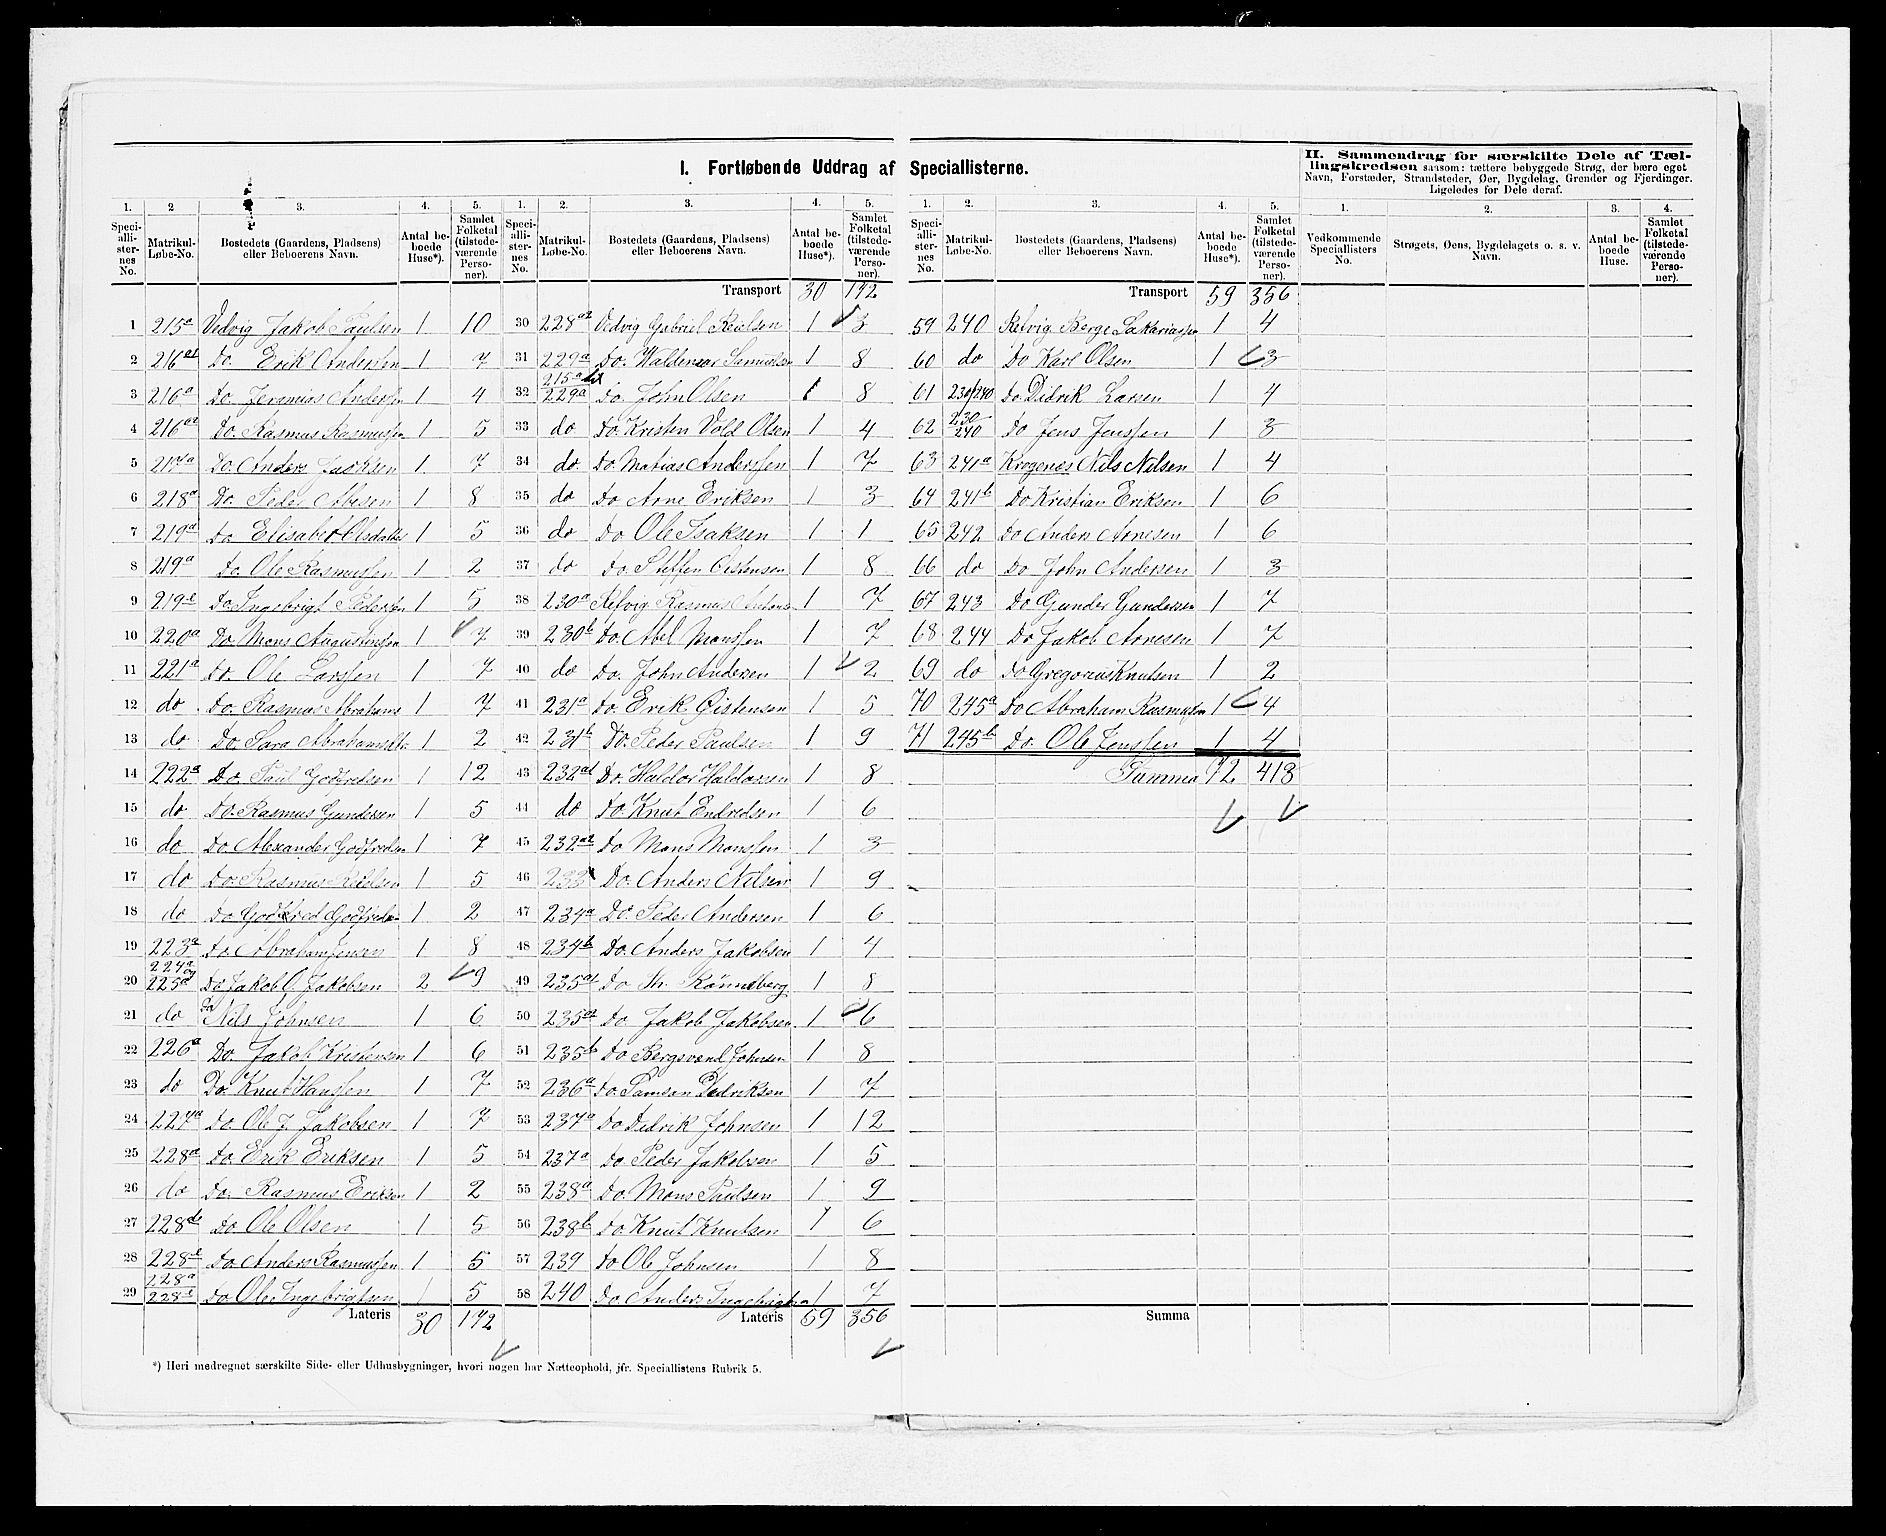 I. Fortløbende Uddrag af Speciallisterne.
II. Sammendrag for særskilte Dele af Tæl-
lingskredsen saasom: tættere bebyggede Strøg, der bære eget
Navn, Forstæder, Strandsteder, Øer, Bygdelag, Grender og Fjerdinger.
Ligeledes for Dele deraf.
1. 2 3. 4. 5. 1. 2. 3. 4. 5. 1. 2. 3. 4. 5. 1. 2. 3. 4.
Speci-alli-ster-nes No. Matrikul-Løbe-No. Bostedets (Gaardens, Pladsens) eller Beboerens Navn. Antal be-boede Huse*). Samlet Folketal (tilstede-værende Perso-ner).
Speci-alli-ster-nes No. Matrikul-Løbe-No. Bostedets (Gaardens, Pladsens) eller Beboerens Navn. Antal be-boede Huse*). Samlet Folketal (tilstede-værende Perso-ner).
Speci-alli-ster-nes No. Matrikul-Løbe-No. Bostedets (Gaardens, Pladsens) eller Beboerens Navn. Antal be-boede Huse*). Samlet Folketal (tilstede-værende Perso-ner).
Vedkommende Speciallisters No. Strøgets, Øens, Bygdelagets o. s. v. Navn. Antal be-boede Huse. Samlet Folketal (tilstede-værende Perso-ner).
1 215a Vedvig Jakob Paulsen 1 10
2 216a1 Do. Erik Anderssen 1 7
3 216a Do. Jeremias Anderssen 1 4
4 216a2 Do. Rasmus Rasmussen 1 5
5 217a Do. Anders Jakobsen 1 7
6 218a Do. Peder 1 8
7 219a Do Elisabet Olsdatter 1 5
8 219a Do. Ole Rasmussen 1 2
9 219 Do Ingebrigt Pedersen 1 5
10 220a Do. Mons Augustinssen 1 7
11 221a Do. Ole Larssen 1 7
12 do Do. Rasmus Abrahams 1 7
13 do Do. Sara Abrahamsdtr 1 2
14 222a Do. Paul Godfredsen 1 12
15 do Do. Rasmus Gundersen 1 5
16 do Do Alexander Godfredsen 1 7
17 do Do. Rasmus 1 5
18 do Do Godfred Godfredsen 1 2
19 223a Do Abraham Jensen 1 8
20 224a og 225a Do Jakob O. Jakobsen 2 9
21 do Do Nils Johnsen 1 6
22 226a Do. Jakob Kristensen 1 6
23 do Do. Knut Hanssen 1 7
24 227a Do Ole J Jakobsen 1 7
25 228a Do. Erik Eriksen 1 5
26 do Do. Rasmus Eriksen 1 2
27 228 Do Ole Olsen 1 5
28 228 Do Anders Rasmussen 1 5
29 228a 228 Do Ole Ingebrigtsen 1 5
Lateris 30 172
Transport 30 172
30 228a2 Vedvig Gabriel 1 3
31 229a Do. Waldemar Samuelsen 1 8
32 215a 229a Do. John Olsen 1 8
33 do Do. Kristen Vold Olsen 1 4
34 do Do Matias Anderssen 1 7
35 do Do Arne Eriksen 1 3
36 do Do Ole Isaksen 1 1
37 do Do. Steffen Østensen 1 8
38 230a Refvig Rasmus 1 7
39 230b Do. Abel Monssen 1 7
40 do Do. John Andersen 1 2
41 231a Do. Erik Østensen 1 5
42 231b Do. Peder Paulsen 1 9
43 232a1 Do. Haldor Haldorsen 1 8
44 do Do. Knut Endredsen 1 6
45 232a2 Do Mons Monssen 1 3
46 233 Do. Anders Nilsen 1 9
47 234a Do. Peder Andersen 1 6
48 234b Do. Anders Jakobsen 1 4
49 235a1 Do Rønneberg 1 8
50 235a2 Do. Jakob Jakobsen 1 6
51 235b Do Bergsvend Johnsen 1 8
52 236a Do. Samson Didriksen 1 7
53 237a Do Didrik Johnsen 1 12
54 237a Do Peder Jakobsen 1 5
55 238a Do. Mons Paulsen 1 9
56 238b Do. Knut Knutsen 1 6
57 239 Do Ole Johnsen 1 8
58 240 Do. Anders Ingebrigtsen 1 7
Lateris 59 356
Transport 59 356
59 240 Refvig Berge Sakariassen 1 4
60 do Do Karl Olsen 1 3
61 230/240 Do Didrik Larsen 1 4
62 230 240 Do Jens Jenssen 1 3
63 241a Krogenæs Nils Nilsen 1 4
64 241b Do Kristian Eriksen 1 6
65 242 Do Anders Arnesen 1 6
66 do Do John Andersen 1 3
67 243 Do Gunder Gundersen 1 7
68 244 Do Jakob Arnesen 1 7
69 do Do Gregorius Knutsen 1 2
70 245a Do Abraham Rasmussen 1 4
71 245b Do. Ole Jenssen 1 4
Summa 72 413
Summa
*) Heri medregnet særskilte Side- eller Udhusbygninger, hvori nogen har Natteophold, jfr. Speciallistens Rubrik 5.